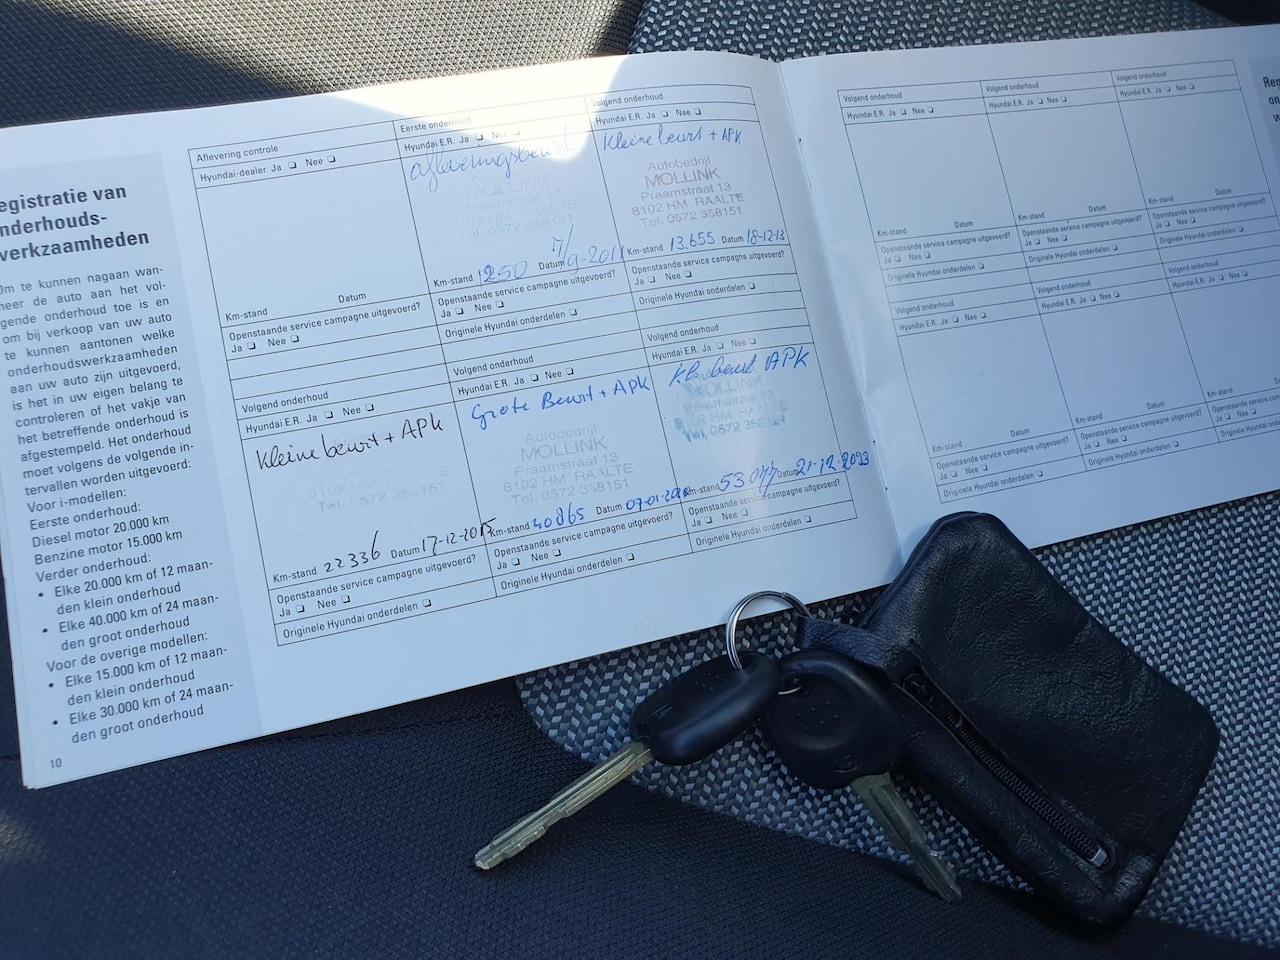 egistratie van
nderhouds-
verkzaamheden
Om te kunnen nagaan wan-
neer de auto aan het vol-
gende onderhoud toe is en
om bij verkoop van uw auto
te kunnen aantonen welke
onderhoudswerkzaamheden
aan uw auto zijn uitgevoerd,
is het in uw eigen belang te
controleren of het vakje van
het betreffende onderhoud is
afgestempeld. Het onderhoud
moet volgens de volgende in-
tervallen worden uitgevoerd:
Voor i-modellen:
Eerste onderhoud:
Diesel motor 20.000 km
Benzine motor 15.000 km
Verder onderhoud:
• Elke 20.000 km of 12 maan-
den klein onderhoud
• Elke 40.000 km of 24 maan-
den groot onderhoud
Voor de overige modellen:
• Elke 15.000 km of 12 maan-
den klein onderhoud
• Elke 30.000 km of 24 maan-
den groot onderhoud
10
Aflevering controle
Hyundai-dealer Ja Nee
Km-stand Datum
Openstaande service campagne uitgevoerd?
Ja Nee
Eerste onderhoud
Hyundai E.R. Ja Nee
afleveringsbeurt
MOLLINK
Km-stand 1250 Datum 7/9-2011
Openstaande service campagne uitgevoerd?
Ja Nee
Originele Hyundai onderdelen
Volgend onderhoud
Hyundai E.R. Ja Nee
Kleine beurt + APK
Autobedrijf
MOLLINK
Praamstraat 13
8102 HM RAALTE
Tel. 0572 358151
Km-stand 13.655 Datum 18-12-13
Openstaande service campagne uitgevoerd?
Ja Nee
Originele Hyundai onderdelen
Volgend onderhoud
Hyundai E.R. Ja Nee
Kleine beurt + APK
Tel. 0572 358151
Km-stand 22336 Datum 17-12-2015
Openstaande service campagne uitgevoerd?
Ja Nee
Originele Hyundai onderdelen
Volgend onderhoud
Hyundai E.R. Ja Nee
Grote Beurt + Apk
Autobedrijf
MOLLINK
Praamstraat 13
8102 HM RAALTE
Tel. 0572 358151
Km-stand 40865 Datum 07-01-2020
Openstaande service campagne uitgevoerd?
Ja Nee
Originele Hyundai onderdelen
Volgend onderhoud
Hyundai E.R. Ja Nee
kl. beurt APK
MOLLINK
Km-stand 53077 Datum 21-12-2023
Openstaande service campagne uitgevoerd?
Ja Nee
Originele Hyundai onderdelen
Volgend onderhoud
Hyundai E.R. Ja Nee
Km-stand Datum
Openstaande service campagne uitgevoerd?
Ja Nee
Originele Hyundai onderdelen
Volgend onderhoud
Hyundai E.R. Ja Nee
Km-stand Datum
Openstaande service campagne uitgevoerd?
Ja Nee
Originele Hyundai onderdelen
Volgend onderhoud
Hyundai E.R. Ja Nee
Km-stand Datum
Openstaande service campagne uitgevoerd?
Ja Nee
Originele Hyundai onderdelen
Volgend onderhoud
Hyundai E.R. Ja Nee
Km-stand Datum
Openstaande service campagne uitgevoerd?
Ja Nee
Originele Hyundai onderdelen
Volgend onderhoud
Hyundai E.R. Ja Nee
Km-stand Datum
Openstaande service campagne uitgevoerd?
Ja Nee
Originele Hyundai onderdelen
Volgend onderhoud
Hyundai E.R. Ja Nee
Km-stand
Openstaande service
Ja Nee
Originele Hyundai